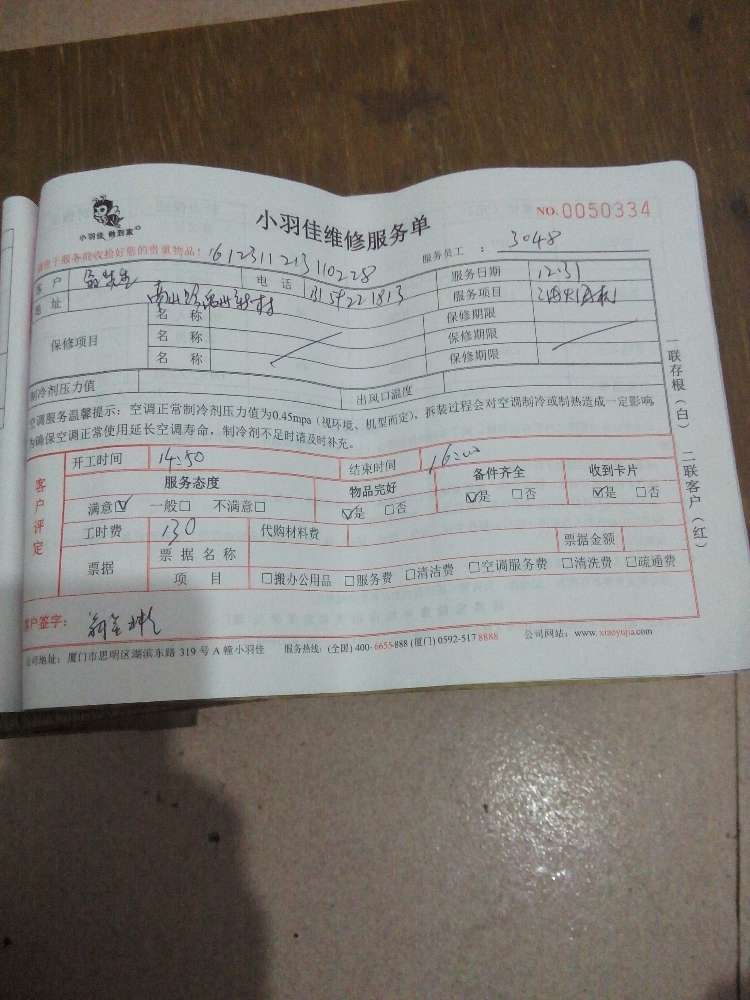 小羽佳 做到家
小羽佳维修服务单
NO.0050334
请您于服务前收拾好您的贵重物品！
161231121311022８
服务员工：3048
客户 先生 电话 服务日期 12.31
地址 服务项目
保修项目 名称 保修期限
名称 保修期限
名称 保修期限
制冷剂压力值 出风口温度
空调服务温馨提示：空调正常制冷剂压力值为0.45mpa（视环境、机型而定），拆装过程会对空调制冷或制热造成一定影响
为确保空调正常使用延长空调寿命，制冷剂不足时请及时补充。
客户评定
开工时间 14:50 结束时间 16:00
服务态度 物品完好 备件齐全 收到卡片
满意☑ 一般□ 不满意□ ☑是 □否 ☑是 □否 ☑是 □否
工时费 130 代购材料费
票据 票据名称 票据金额
项目 □搬办公用品 □服务费 □清洁费 □空调服务费 □清洗费 □疏通费
客户签字：
公司地址：厦门市思明区湖滨东路 319 号 A 幢小羽佳 服务热线：(全国) 400-6655-888 (厦门) 0592-517 8888 公司网站：www.xiaoyujia.com
一联存根（白） 二联客户（红）